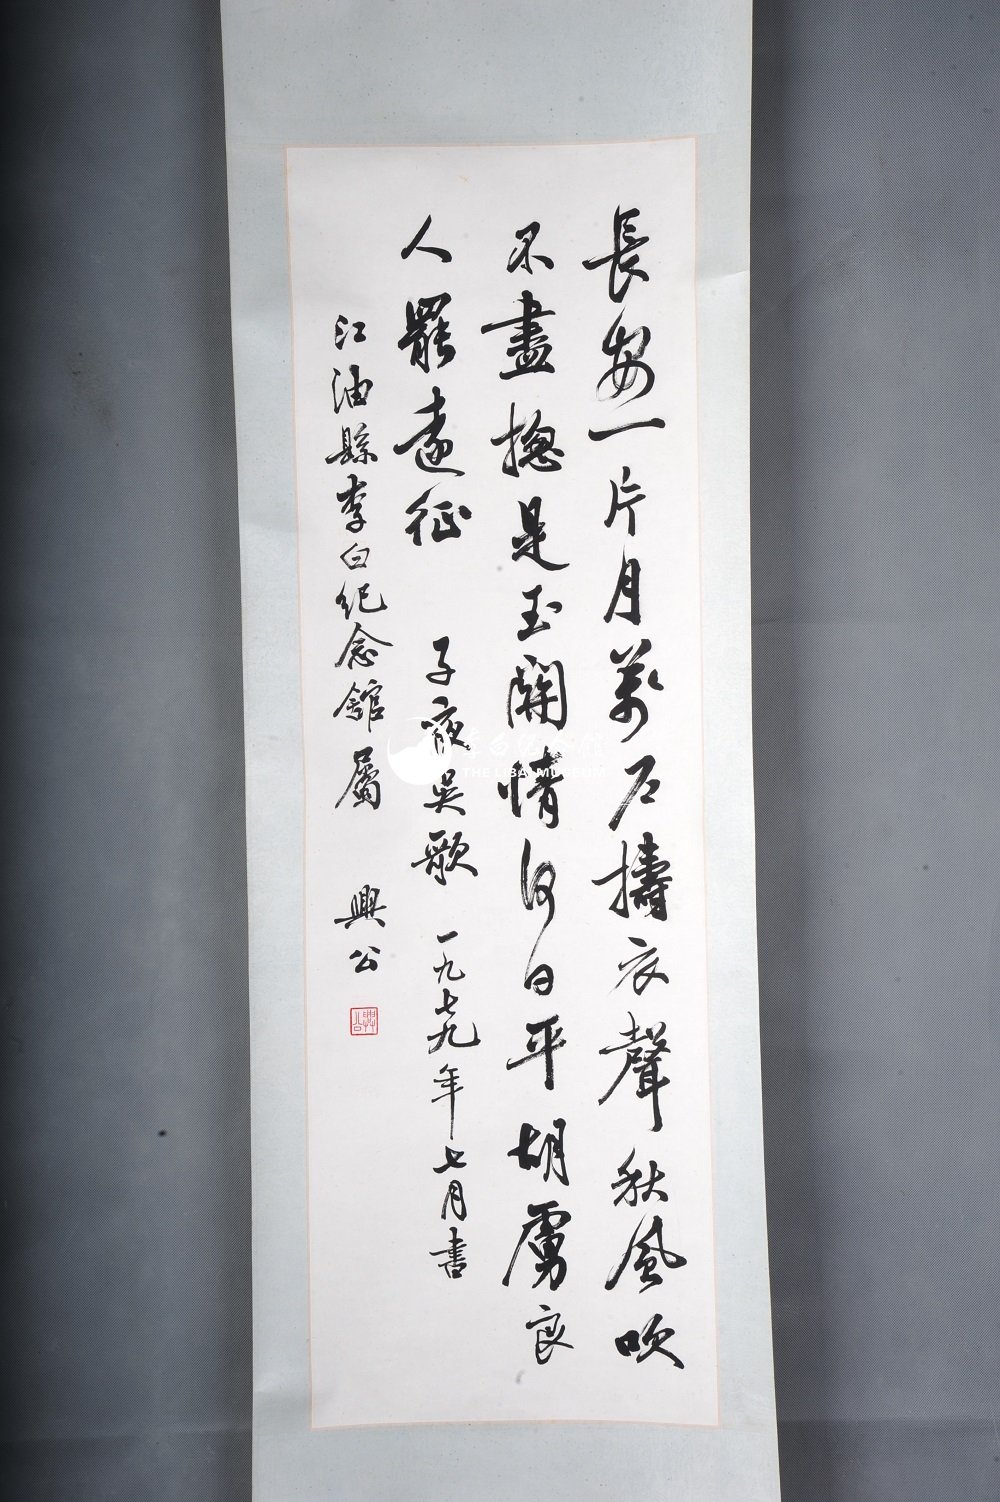 長安一片月萬户擣衣聲秋風吹
不盡揔是玉關情何日平胡虜良
人罷遠征 子夜吳歌 一九七九年七月書
江油縣李白纪念舘屬 興公
興公
李白纪念館
THE LIBAI MUSEUM